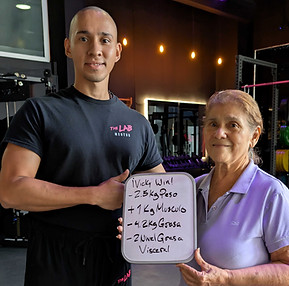 THE LAB
MASTER
¡Vicky Win!
-2.5kg Peso
+1kg Musculo
-4.2kg Grasa
-2 Nivel Grasa
Visceral